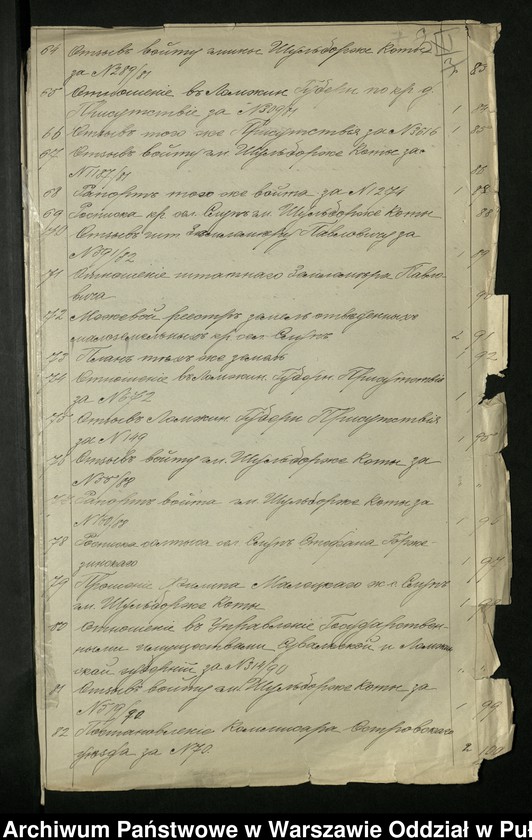 64 Отзывъ войту гмины Шульборже Коты
за №289/81 83
65 Отношеніе въ Ломжин. Губерн. по кр. д.
Присутствіе за №309/81 1 84
66 Отзывъ того же Присутствія за №3616 1 85
67 Отзывъ войту гм. Шульборже Коты за
№1187/81 86
68 Рапортъ того же войта за №1274 1 87
69 Росписка кр. сел. Слупъ гм. Шульборже Коты 88
70 Отзывъ шт. Землемѣру Павловичу за
№39/82 1 89
71 Отношеніе штатнаго Землемѣра Павло-
вича 90
72 Межевой реестръ земель отведенныхъ
малоземельныхъ кр. сел. Слупъ 2 91
73 Планъ тѣхъ же земель 1 92
74 Отношеніе въ Ломжин. Губерн. Присутствіе
за №672 1
75 Отзывъ Ломжин. Губерн. Присутствія
за №149 1 95
Отзывъ войту гм. Шульборже Коты за
№351/88
Рапортъ войта гм. Шульборже Коты за
№1150/88 1 96
78 Росписка солтыса сел. Слупъ Стефана Горже-
зинскаго 1 97
79 Прошеніе Малецкаго ж. с. Слупъ
гм. Шульборже Коты 1 98
80 Отношеніе въ Управленіе Государствен-
ными имуществами Сувалкской и Ломжин-
ской губерній за №314/90
81 Отзывъ войту гм. Шульборже Коты за
№519/90 1 99
82 Постановленіе Коммисара Островскаго
уѣзда за №70. 2 100
Archiwum Państwowe w Warszawie Oddział w Puł